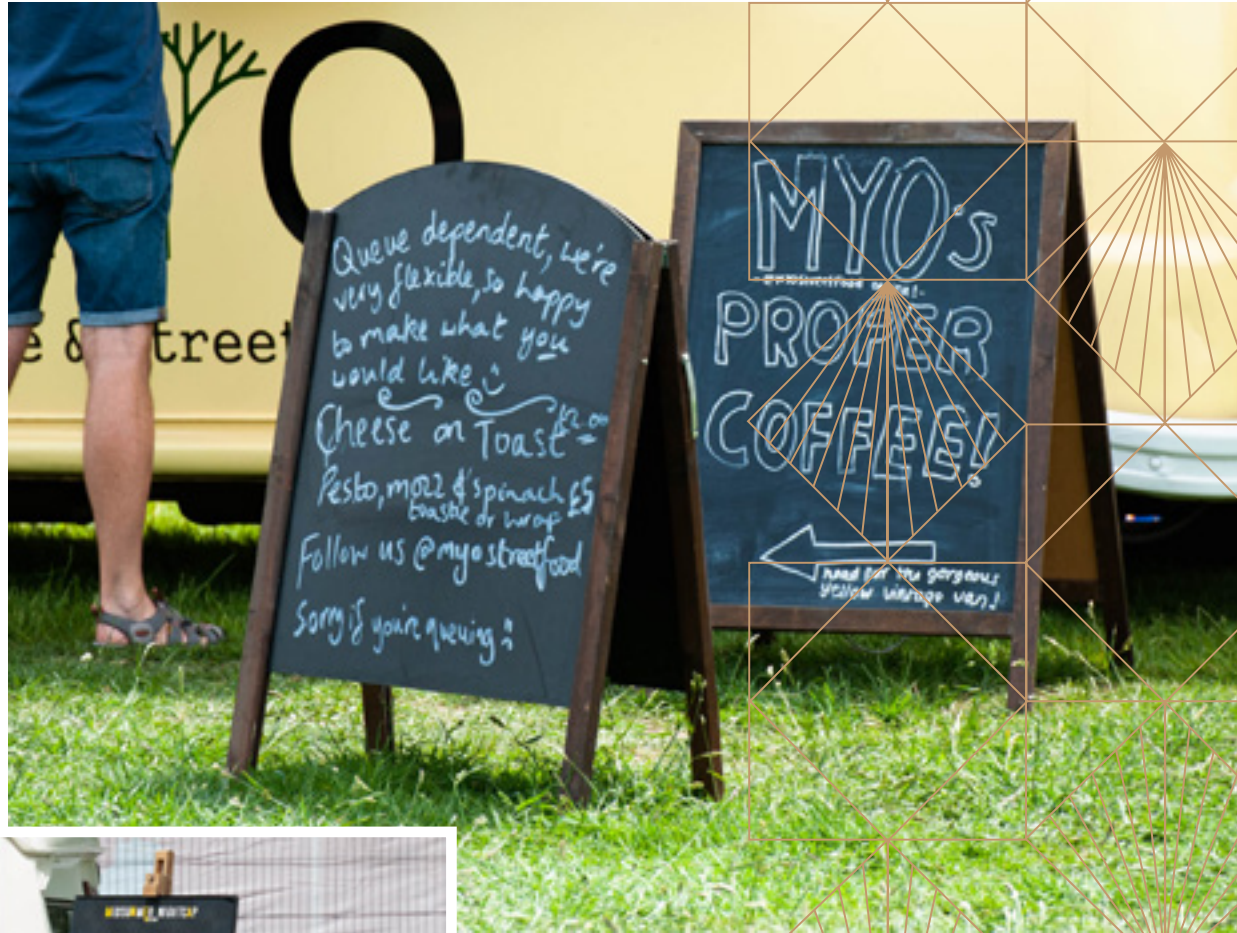 O
e & street
Queue dependent, we're
very flexible, so happy
to make what you
would like :)
Cheese on Toast £2.00
Pesto, mozz & spinach £5
toastie or wrap
Follow us @myostreetfood
Sorry if you're queuing :)
MYO's
PROPER
COFFEE!
head for the gorgeous
yellow vintage van!